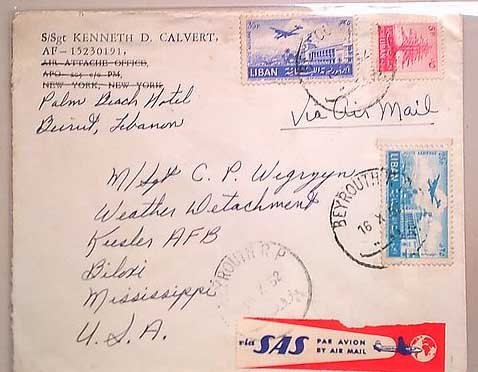 S/Sgt KENNETH D. CALVERT,
AF-15230191,
AIR ATTACHE OFFICE,
NEW YORK, NEW YORK
Palm Beach Hotel
Beirut, Lebanon
35P
LIBAN
5P
Via Air Mail
M/Sgt C. P. Wegrzyn
Weather Detachment
Kiesler AFB
Biloxi
Mississippi
U.S.A.
LIBAN
BEYROUTH R.P
16 X
BEYROUTH R.P
52
via SAS
PAR AVION
BY AIR MAIL